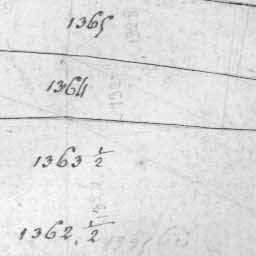 1365
1364
1363 1/2
1362. 1/2